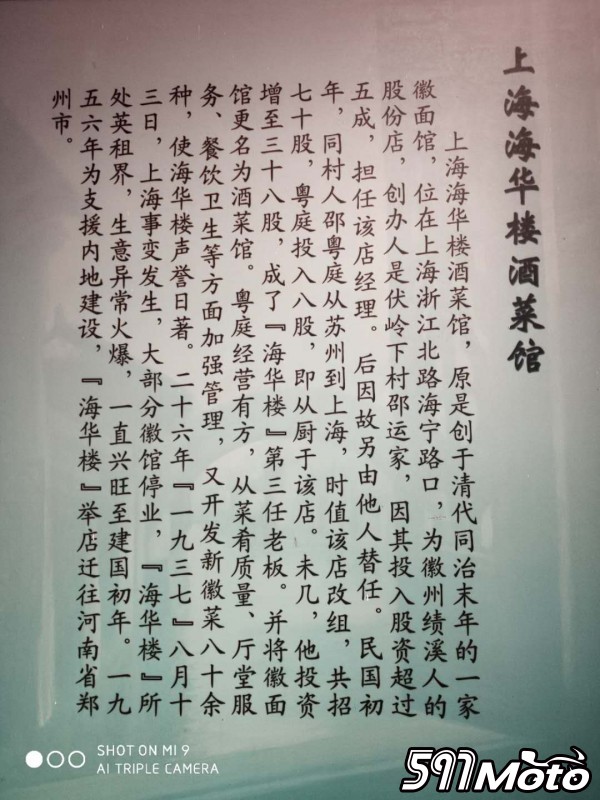 上海海华楼酒菜馆
上海海华楼酒菜馆，原是创于清代同治末年的一家
徽面馆，位在上海浙江北路海宁路口，为徽州绩溪人的
股份店，创办人是伏岭下村邵运家，因其投入股资超过
五成，担任该店经理。后因故另由他人替任。民国初
年，同村人邵粤庭从苏州到上海，时值该店改组，共招
七十股，粤庭投入八股，即从厨于该店。未几，他投资
增至三十八股，成了『海华楼』第三任老板。并将徽面
馆更名为酒菜馆。粤庭经营有方，从菜肴质量、厅堂服
务、餐饮卫生等方面加强管理，又开发新徽菜八十余
种，使海华楼声誉日著。二十六年『一九三七』八月十
三日，上海事变发生，大部分徽馆停业，『海华楼』所
处英租界，生意异常火爆，一直兴旺至建国初年。一九
五六年为支援内地建设，『海华楼』举店迁往河南省郑
州市。
SHOT ON MI 9
AI TRIPLE CAMERA
591Moto